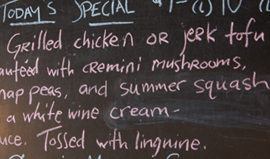 TODAY'S SPECIAL
Grilled chicken OR jerk tofu
with cremini mushrooms,
peas, and summer squash
a white wine cream-
Tossed with linguine.